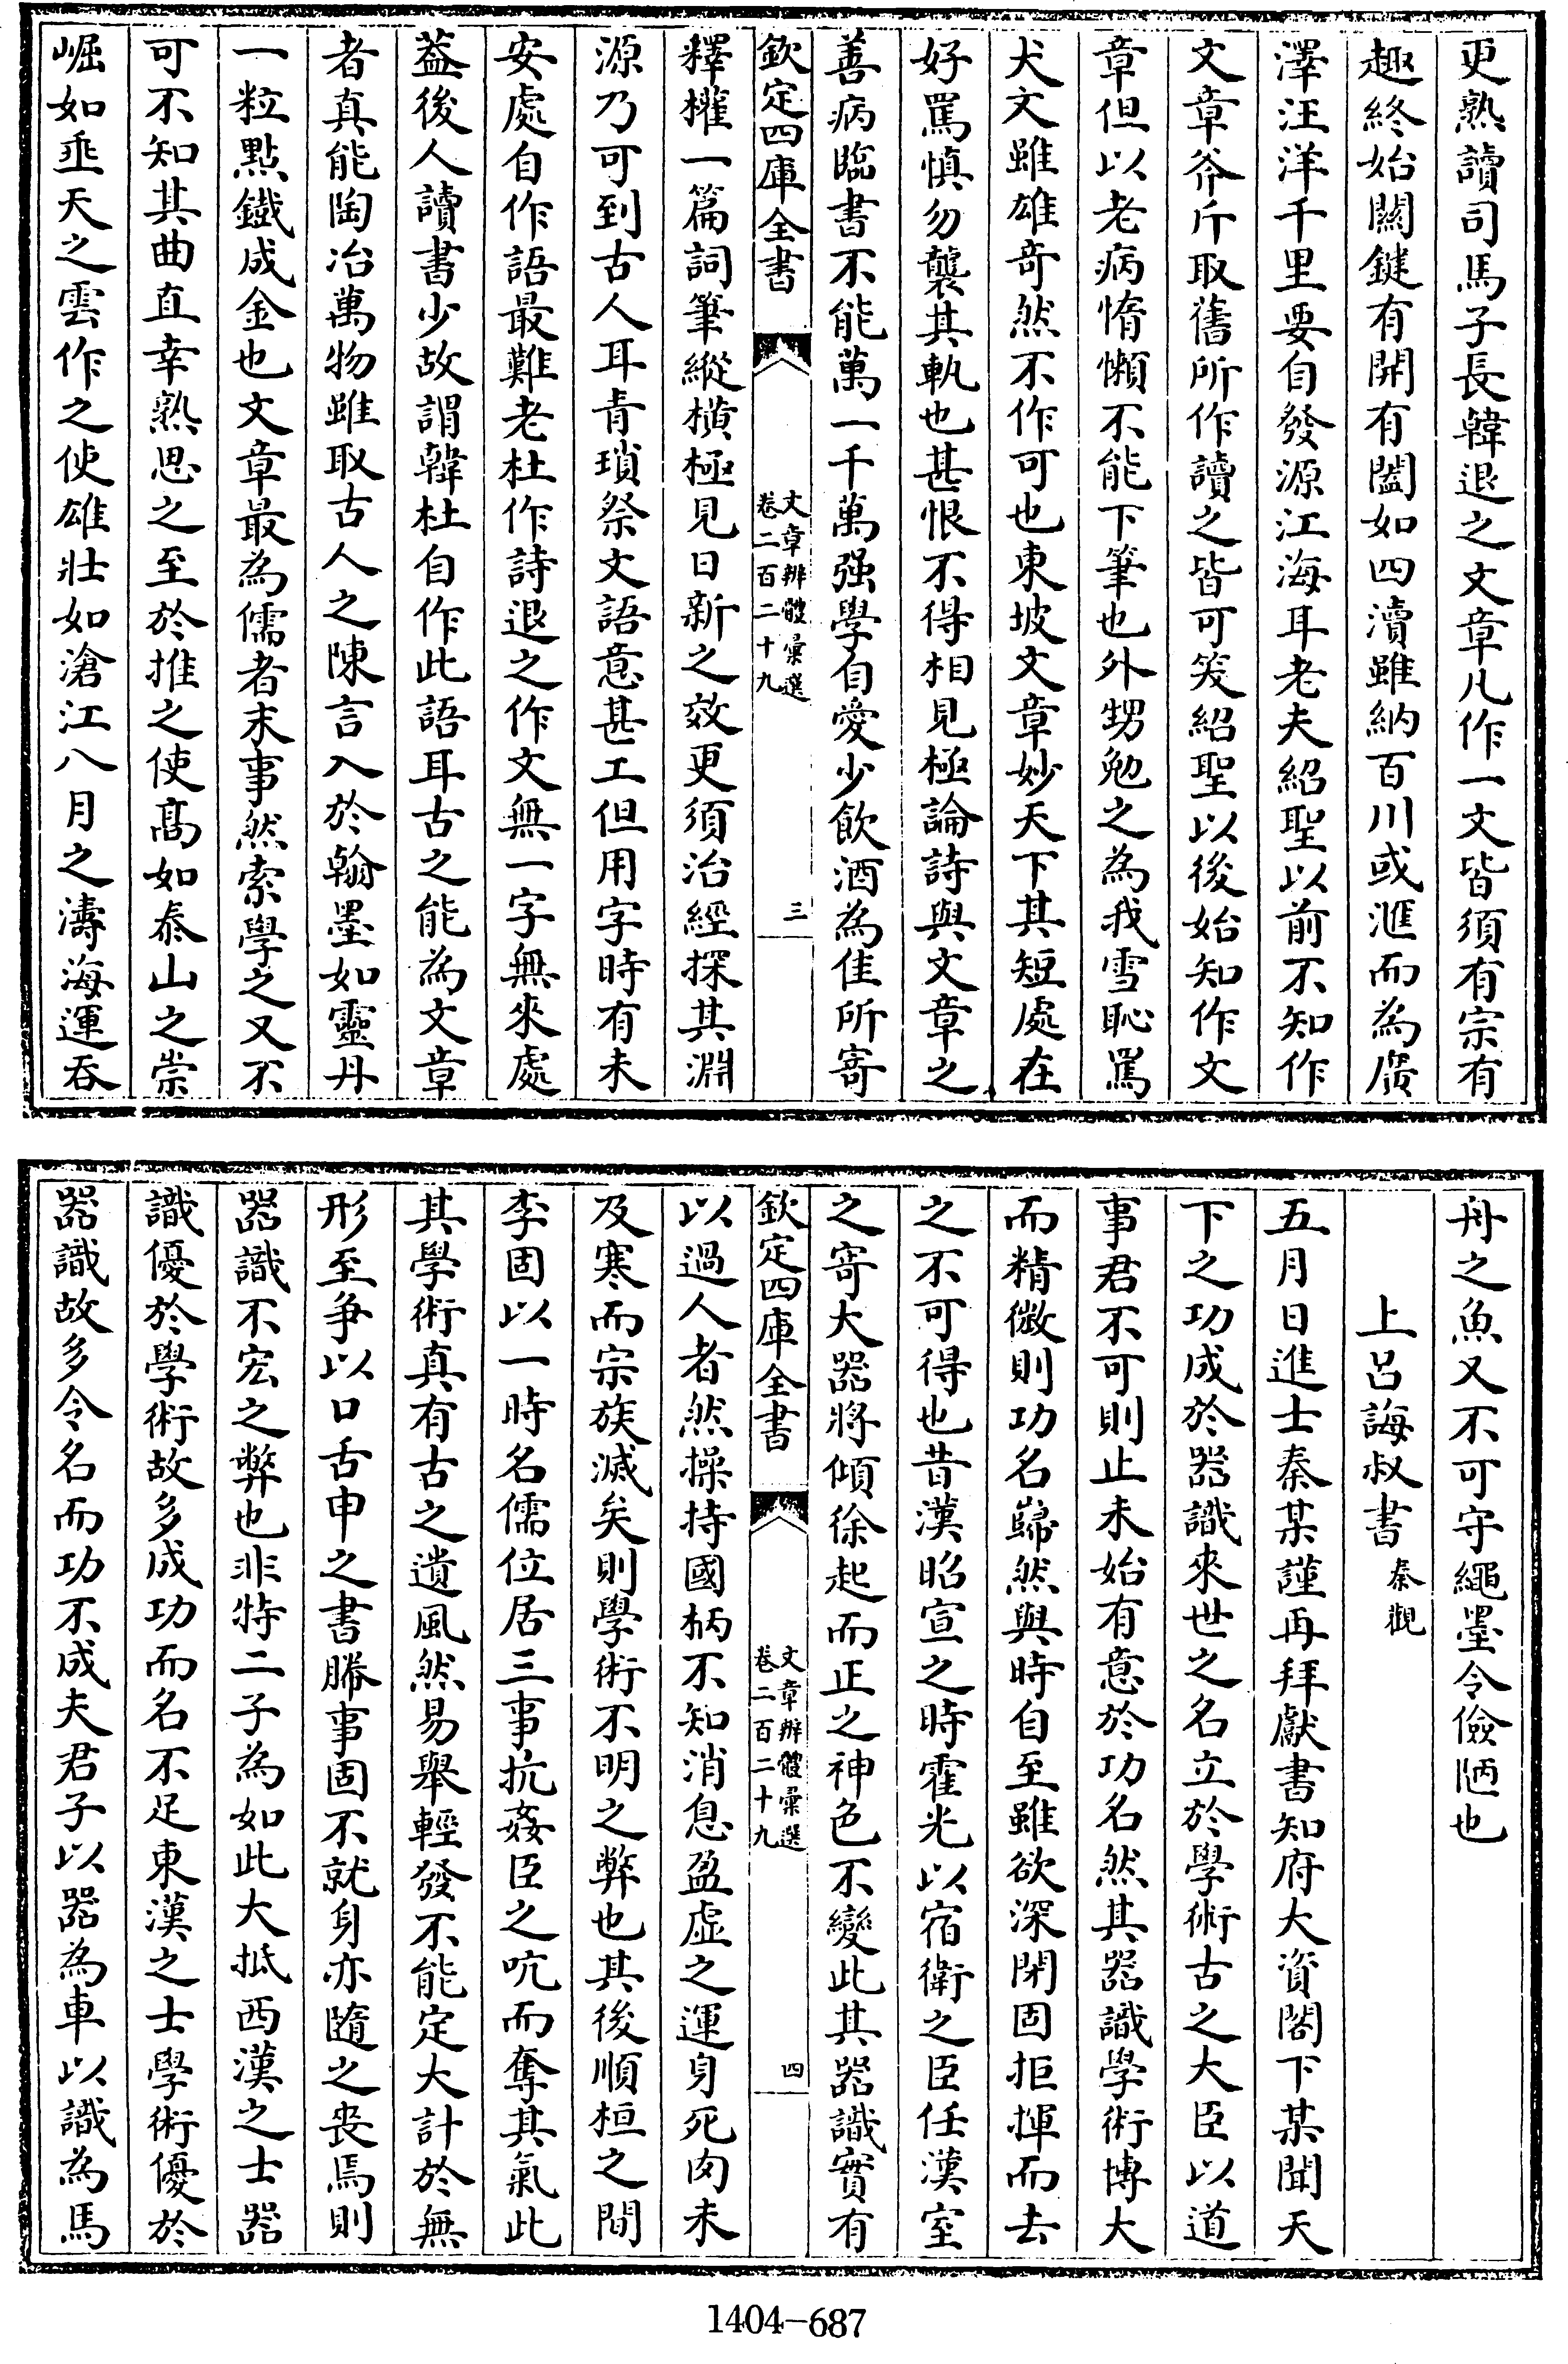 更熟讀司馬子長韓退之文章凡作一文皆須有宗有
趣終始關鍵有開有闔如四瀆雖納百川或滙而為廣
澤汪洋千里要自發源江海耳老夫紹聖以前不知作
文章斧斤取舊所作讀之皆可笑紹聖以後始知作文
章但以老病惰懶不能下筆也外甥勉之為我雪恥罵
犬文雖雄奇然不作可也東坡文章妙天下其短處在
好罵慎勿襲其軌也甚恨不得相見極論詩與文章之
善病臨書不能萬一千萬强學自愛少飲酒為佳所寄
欽定四庫全書
文章辨體彙選
卷二百二十九
三
釋權一篇詞筆縱橫極見日新之效更須治經探其淵
源乃可到古人耳青瑣祭文語意甚工但用字時有未
安處自作語最難老杜作詩退之作文無一字無來處
葢後人讀書少故謂韓杜自作此語耳古之能為文章
者真能陶冶萬物雖取古人之陳言入於翰墨如靈丹
一粒點鐵成金也文章最為儒者末事然索學之又不
可不知其曲直幸熟思之至於推之使高如泰山之崇
崛如垂天之雲作之使雄壯如滄江八月之濤海運吞
舟之魚又不可守繩墨令儉陋也
上呂誨叔書秦觀
五月日進士秦某謹再拜獻書知府大資閣下某聞天
下之功成於器識來世之名立於學術古之大臣以道
事君不可則止未始有意於功名然其器識學術博大
而精微則功名巋然與時自至雖欲深閉固拒揮而去
之不可得也昔漢昭宣之時霍光以宿衛之臣任漢室
之寄大器將傾徐起而正之神色不變此其器識實有
欽定四庫全書
文章辨體彙選
卷二百二十九
四
以過人者然操持國柄不知消息盈虛之運身死肉未
及寒而宗族滅矣則學術不明之弊也其後順桓之間
李固以一時名儒位居三事抗姦臣之吭而奪其氣此
其學術真有古之遺風然易舉輕發不能定大計於無
形至爭以口舌申之書勝事固不就身亦隨之喪焉則
器識不宏之弊也非特二子為如此大抵西漢之士器
識優於學術故多成功而名不足東漢之士學術優於
器識故多令名而功不成夫君子以器為車以識為馬
1404-687